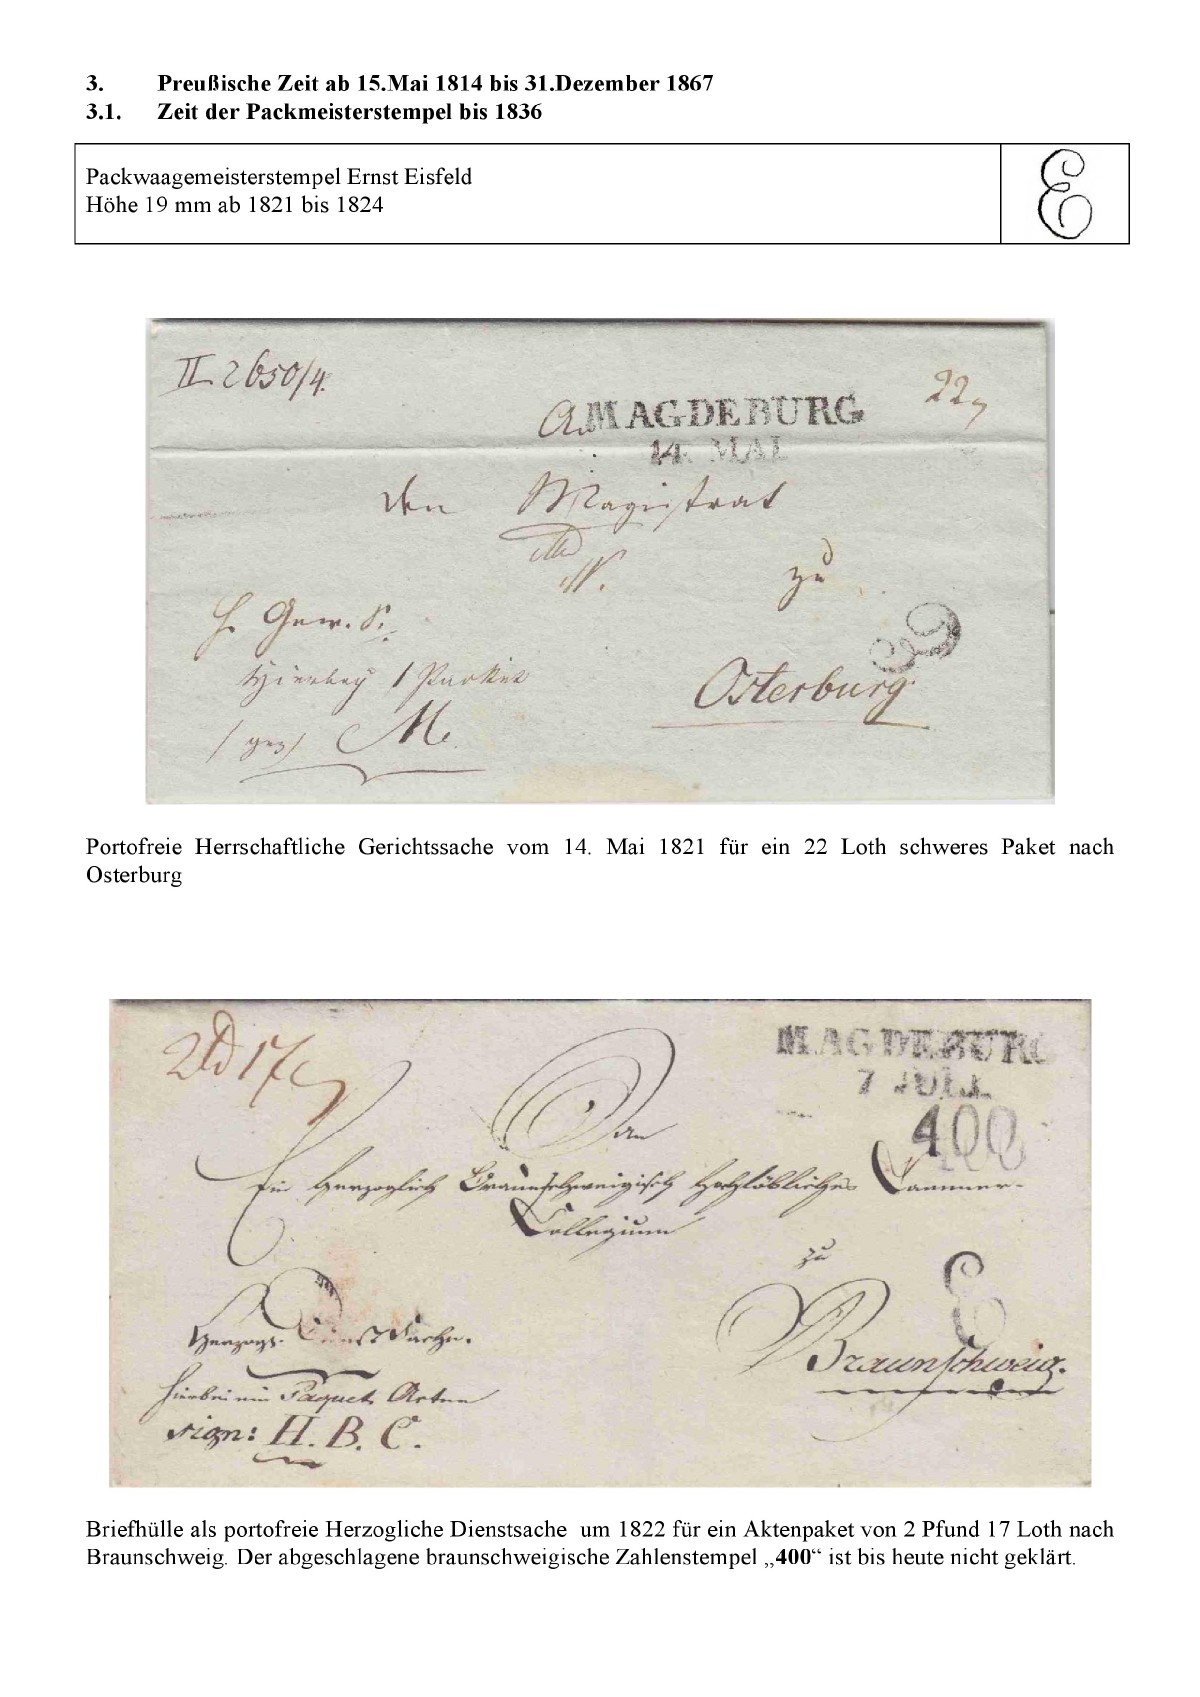 3. Preußische Zeit ab 15.Mai 1814 bis 31.Dezember 1867
3.1. Zeit der Packmeisterstempel bis 1836
Packwaagemeisterstempel Ernst Eisfeld
Höhe 19 mm ab 1821 bis 1824
E
II 2650/4.
22
An MAGDEBURG
14. MAI
den Magistrat
zu
H. Gew. S.
Hierbey 1 Packet
Osterburg
/ gez / M.
E
Portofreie Herrschaftliche Gerichtssache vom 14. Mai 1821 für ein 22 Loth schweres Paket nach
Osterburg
2 17
MAGDEBURG
7 JULI
400
An
Ein Herzoglich Braunschweigisch Hochlöbliches Cammer-
Collegium
zu
E
Herzogl. Dienst Sache.
Braunschweig.
hierbei ein Paquet Acten
sign: H. B. C.
Briefhülle als portofreie Herzogliche Dienstsache um 1822 für ein Aktenpaket von 2 Pfund 17 Loth nach
Braunschweig. Der abgeschlagene braunschweigische Zahlenstempel „400“ ist bis heute nicht geklärt.